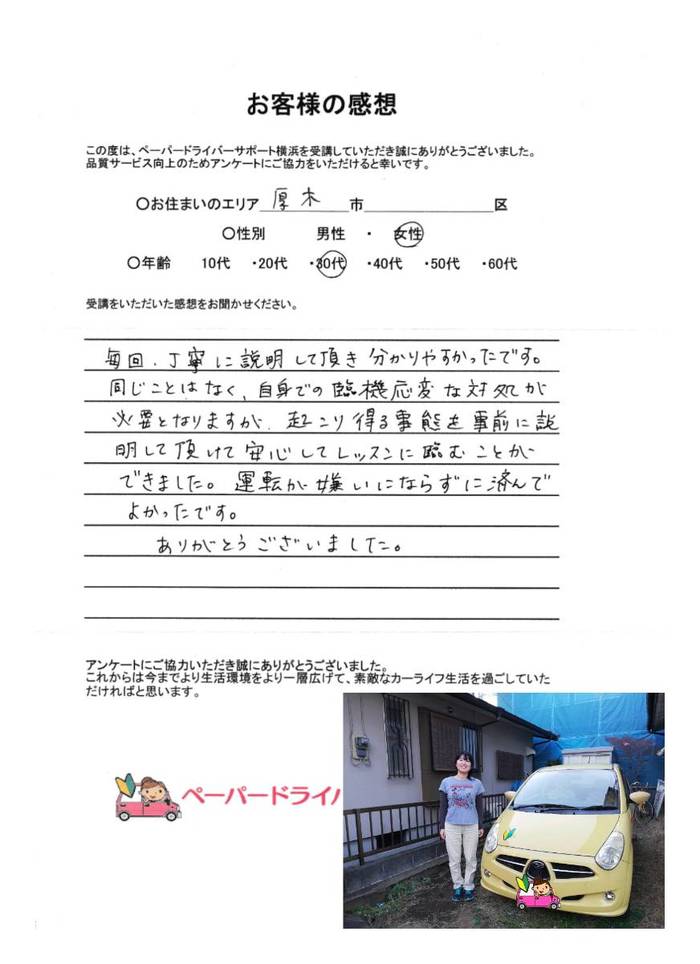 お客様の感想
この度は、ペーパードライバーサポート横浜を受講していただき誠にありがとうございました。
品質サービス向上のためアンケートにご協力をいただけると幸いです。
〇お住まいのエリア 厚木 市 区
〇性別 男性 ・ 女性
〇年齢 10代 ・20代 ・30代 ・40代 ・50代 ・60代
受講をいただいた感想をお聞かせください。
毎回、丁寧に説明して頂き分かりやすかったです。
同じことはなく、自身での臨機応変な対処が
必要となりますが、起こり得る事態を事前に説
明して頂けて安心してレッスンに臨むことが
できました。運転が嫌いにならずに済んで
よかったです。
ありがとうございました。
アンケートにご協力いただき誠にありがとうございました。
これからは今までより生活環境をより一層広げて、素敵なカーライフ生活を過ごしていた
だければと思います。
ペーパードライバ